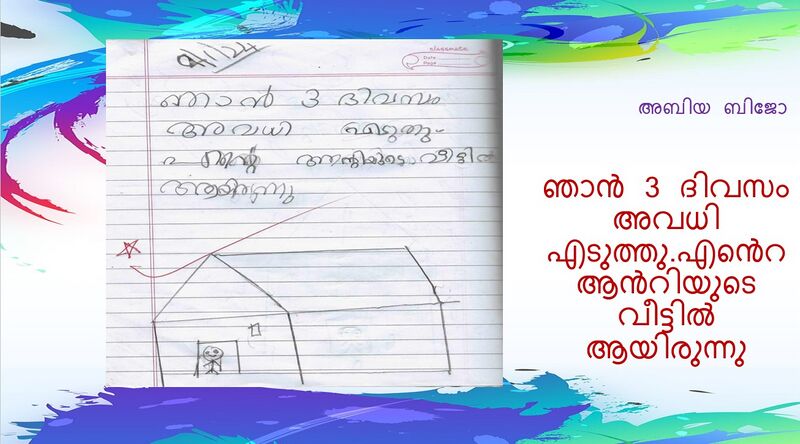 classmate
Date
Page
ഞാൻ 3 ദിവസം
അവധി എടുത്തു.
എന്റെ ആന്റിയുടെ വീട്ടിൽ
ആയിരുന്നു
അബിയ ബിജോ
ഞാൻ 3 ദിവസം
അവധി
എടുത്തു.എൻെറ
ആൻറിയുടെ
വീട്ടിൽ
ആയിരുന്നു